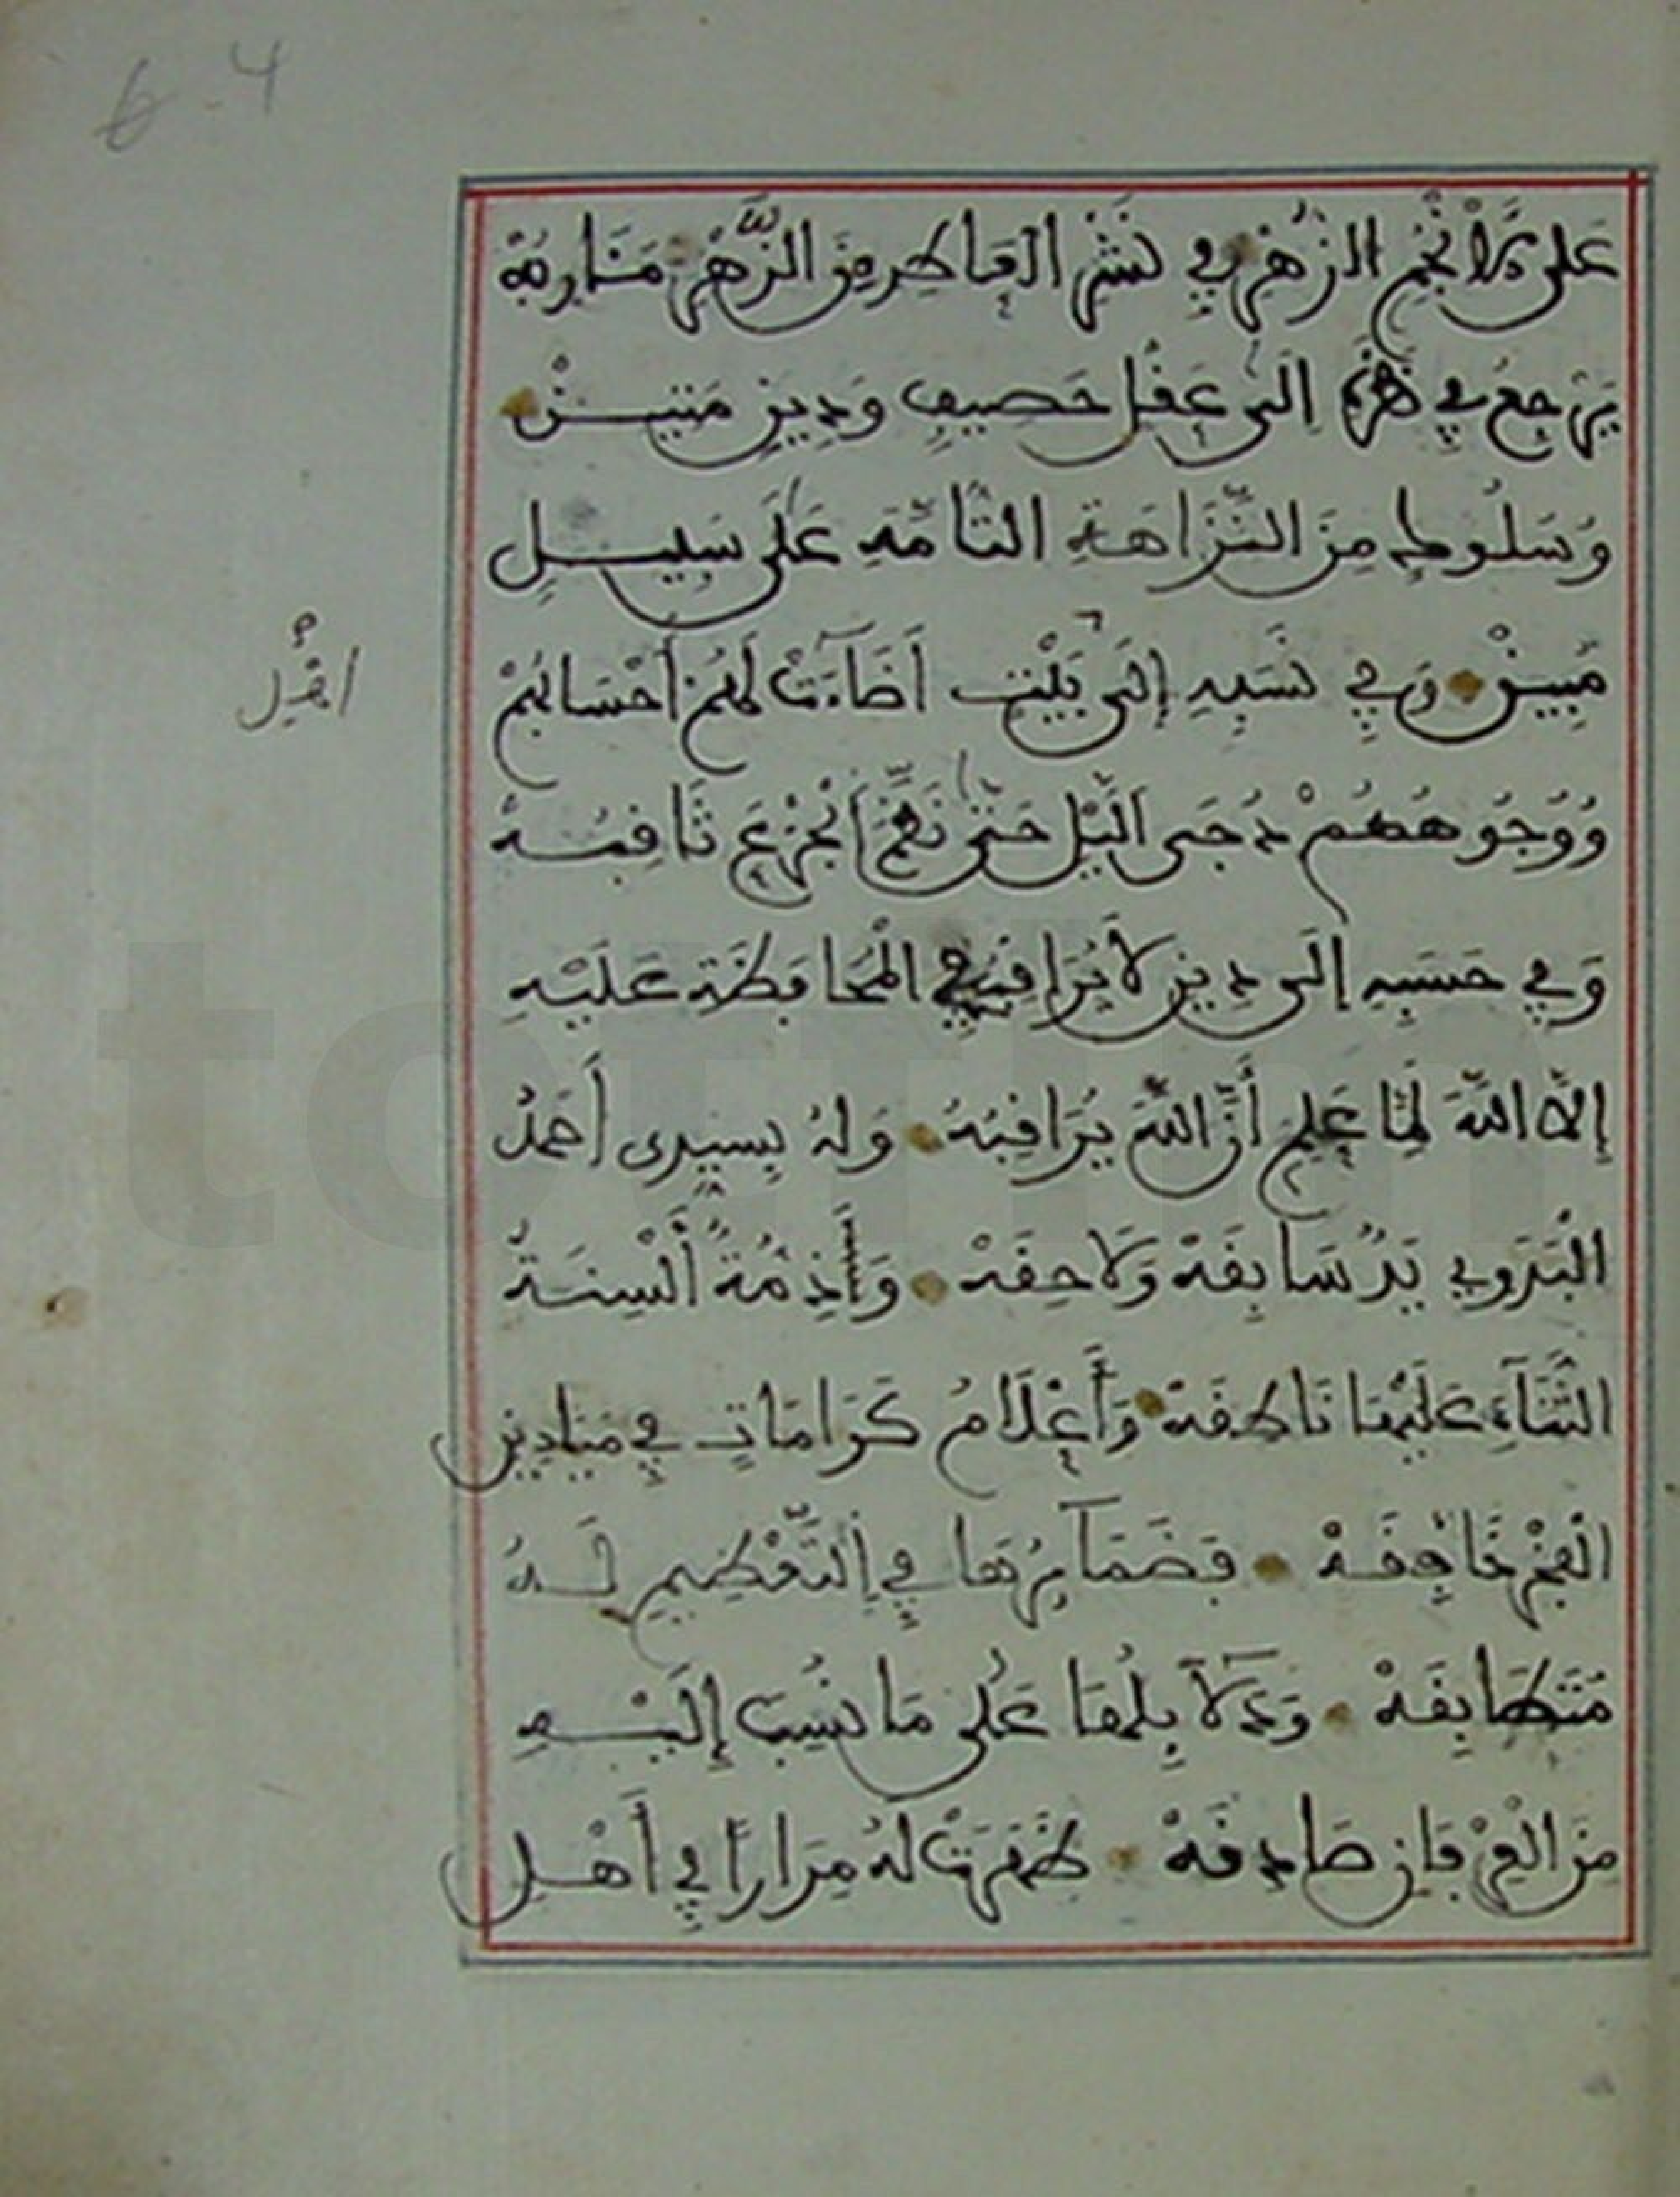 6-4
عَلَى الْأَنْجُمِ الزُّهْرِ فِي نَشْرِ الْعَاطِرِ مِنَ الزَّهْرِ مَنَارِبُهْ
يَرْجِعُ فِي إِلَى عَقْلٍ حَصِيفٍ وَدِينٍ مَتِينْ
وَسُلُوكٍ مِنَ النَّزَاهَةِ التَّامَّةِ عَلَى سَبِيلٍ
مُبِينْ وَفِي نَسَبِهِ إِلَى بَيْتٍ أَضَاءَتْ لَهُمْ أَحْسَابُهُمْ
وَوُجُوهُهُمْ دُجَى الَّيْلِ حَتَّى نَظَّمَ الْجَزْعَ ثَاقِبُهْ
وَفِي حَسَبِهِ إِلَى دِينٍ لَا يُرَاقِبُ فِي الْمُحَافَظَةِ عَلَيْهِ
إِلَّا اللَّهَ لَمَّا عَلِمَ أَنَّ اللَّهَ يُرَاقِبُهُ وَلَهُ بِسَيِّدِي أَحْمَدَ
الْبَدَوِي يَدٌ سَابِقَةٌ وَلَاحِقَهْ وَأَلْسِنَةُ
الثَّنَاءِ عَلَيْهَا نَاطِقَهْ وَأَعْلَامُ كَرَامَاتٍ فِي مَيَادِينِ
الْفَخْرِ خَافِقَهْ فَضَمَائِرُهَا فِي التَّعْظِيمِ لَهُ
مُتَطَابِقَهْ وَدَلَائِلُهَا عَلَى مَا نُسِبَ إِلَيْهِ
مِنَ الْعِرْفَانِ صَادِقَهْ ظَهَرَتْ لَهُ مِرَارًا فِي أَهْلِ